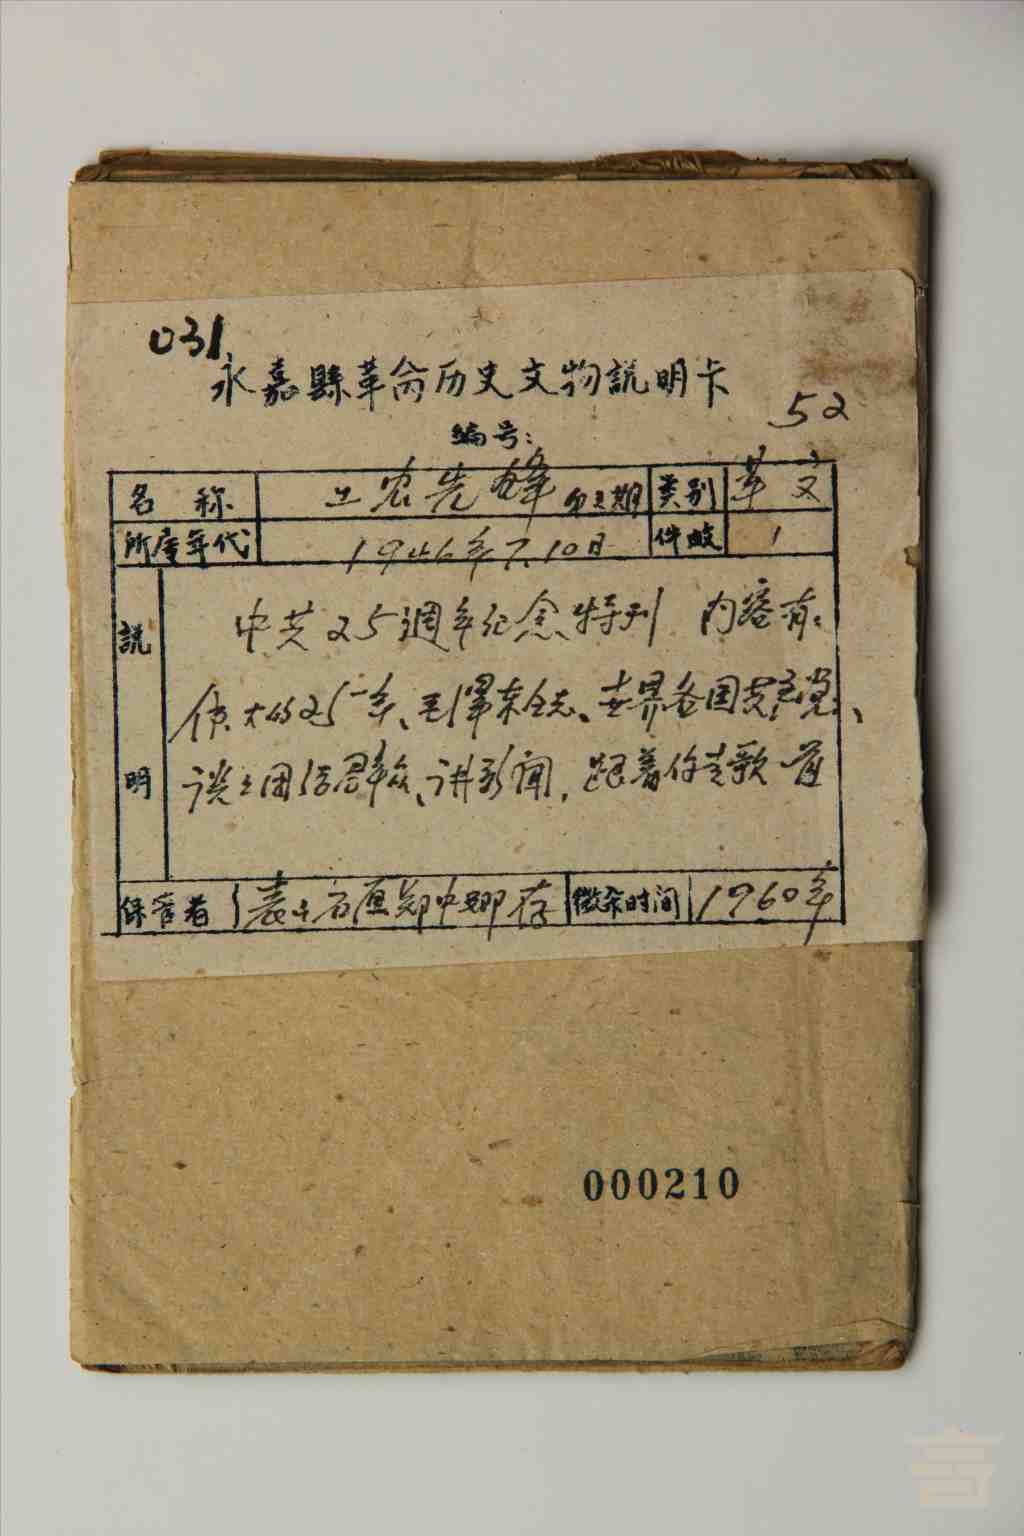 031
永嘉縣革命历史文物説明卡
52
编号:
名称 工农先鋒 期 类别 革文
所屬年代 1946年7.10日 件数 1
説明 中共25週年纪念特刊 内容有:
伟大的25年、毛澤东同志、世界各国共产党、
谈谈团结群众、讲新闻,跟着你走歌一首
保管者 存 徵集时间 1960年
000210